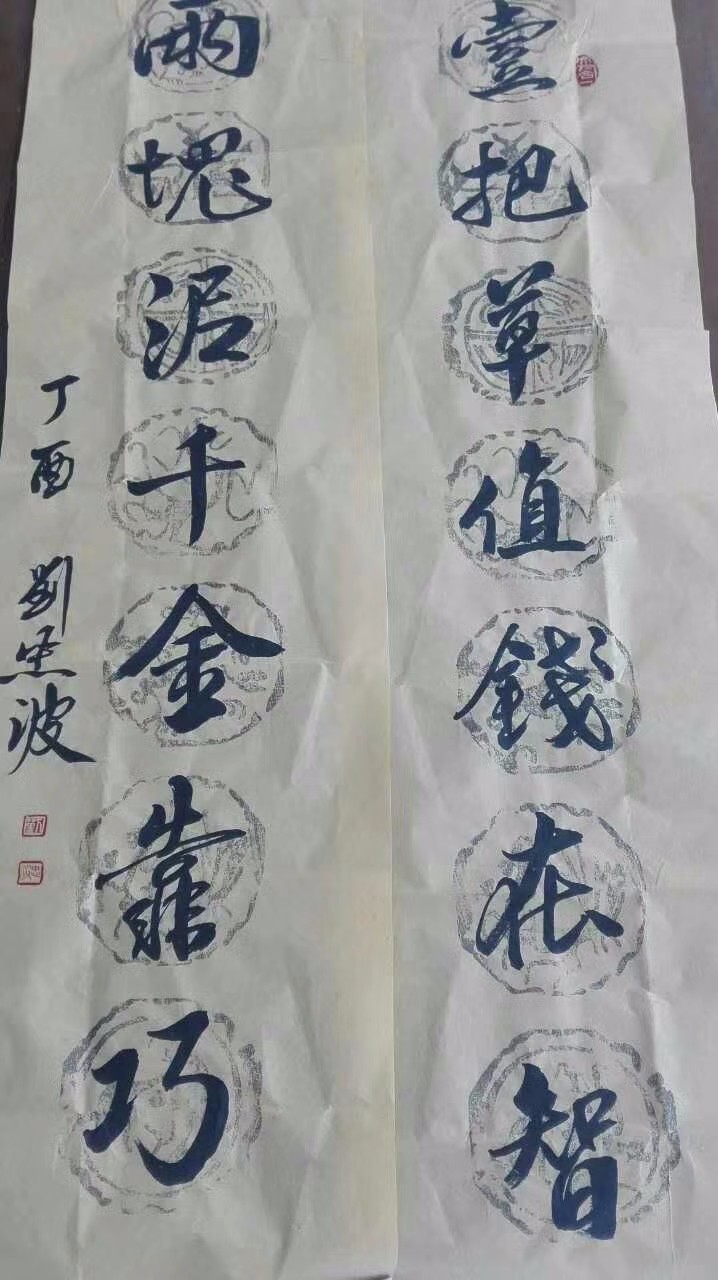 壹把草值錢在智
兩塊泥千金靠巧
丁酉 劉忠波